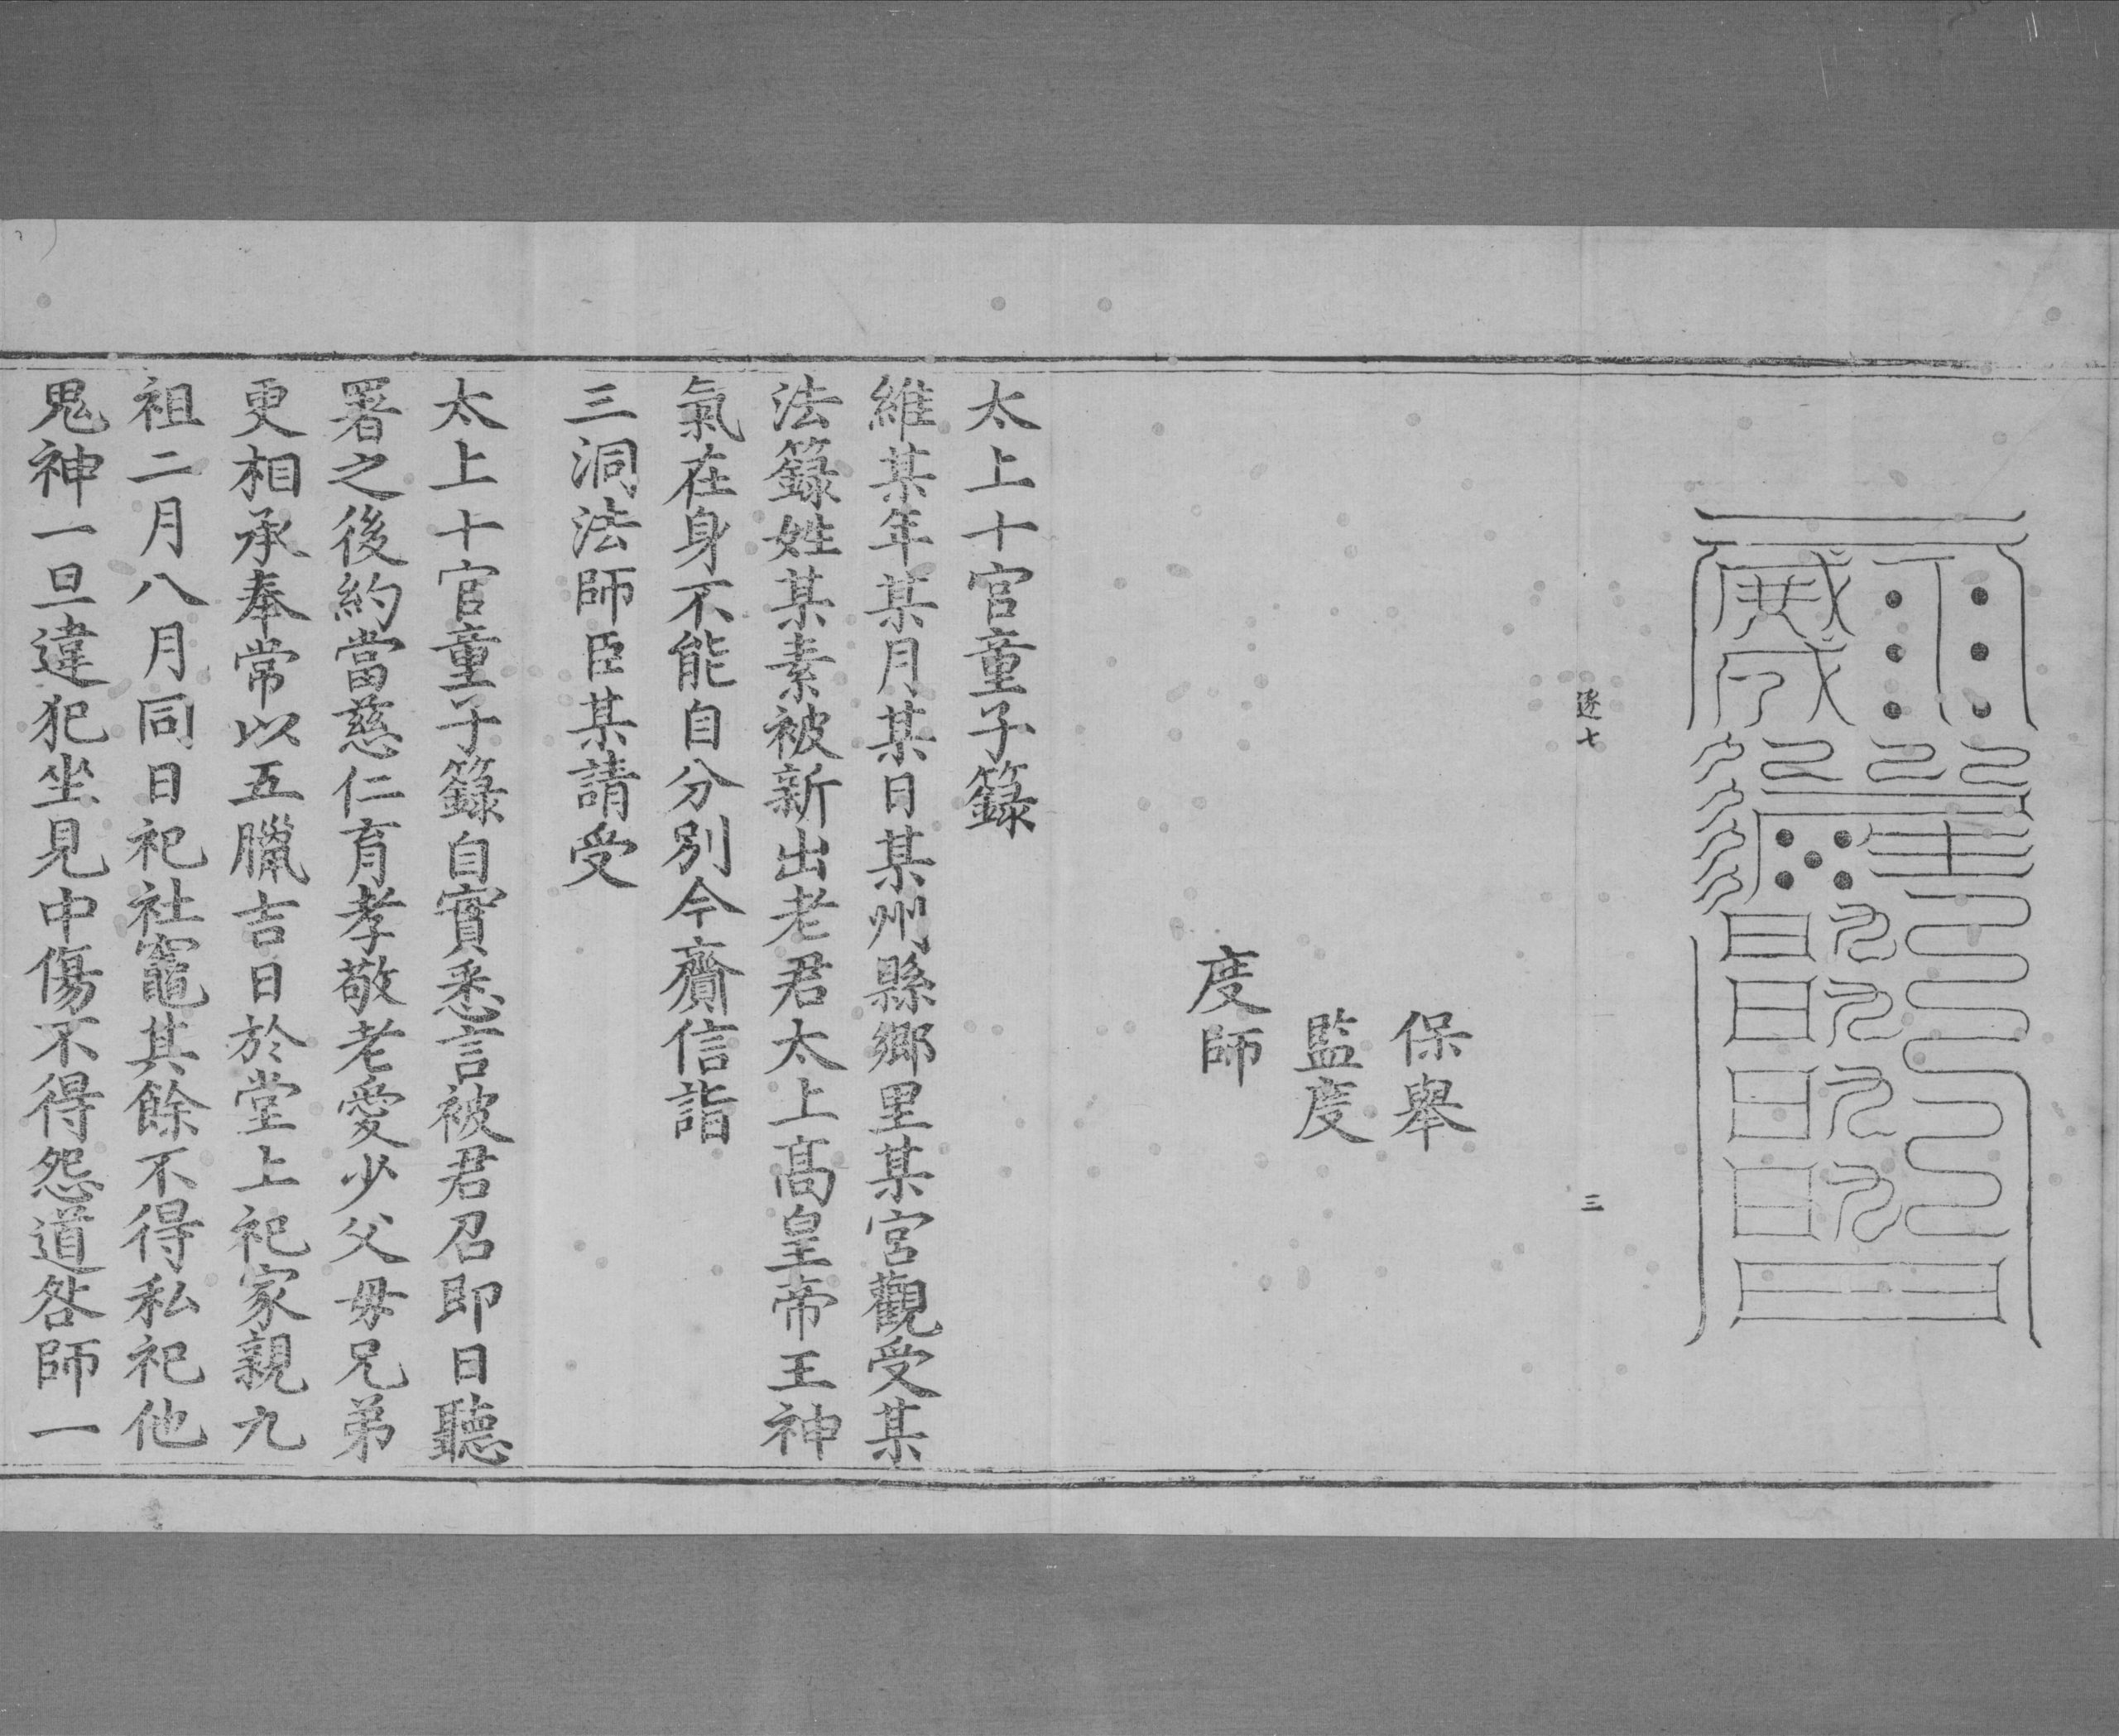 逐七
三
保舉
監度
度師
太上十官童子籙
維某年某月某日某州縣鄉里某宮觀受某
法籙姓某素被新出老君太上髙皇帝王神
氣在身不能自分別今齎信詣
三洞法師臣某請受
太上十官童子籙自實悉言被君召即日聽
署之後約當慈仁育孝敬老愛少父母兄弟
更相承奉常以五臘吉日於堂上祀家親九
祖二月八月同日祀社竈其餘不得私祀他
鬼神一旦違犯坐見中傷不得怨道咎師一